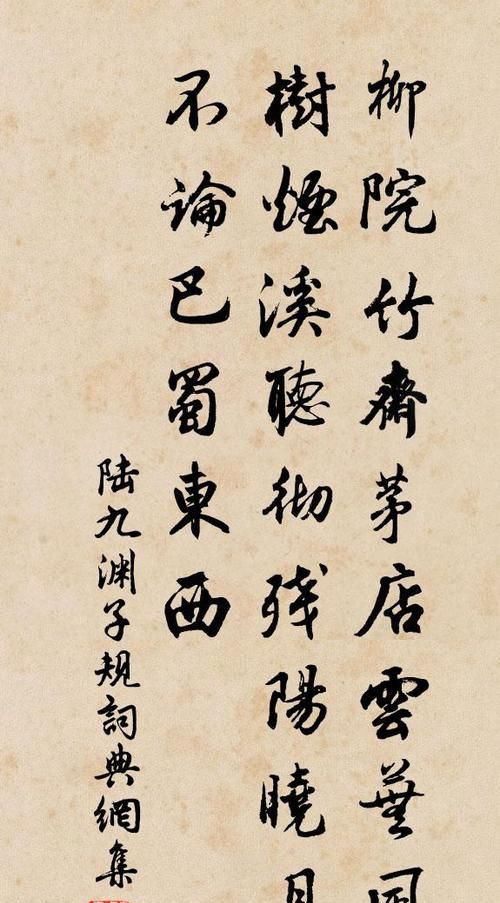 柳院竹齋茅店雲蕪
樹煙溪聽彻残陽曉
不論巴蜀東西
陸九渊子規詞典網集